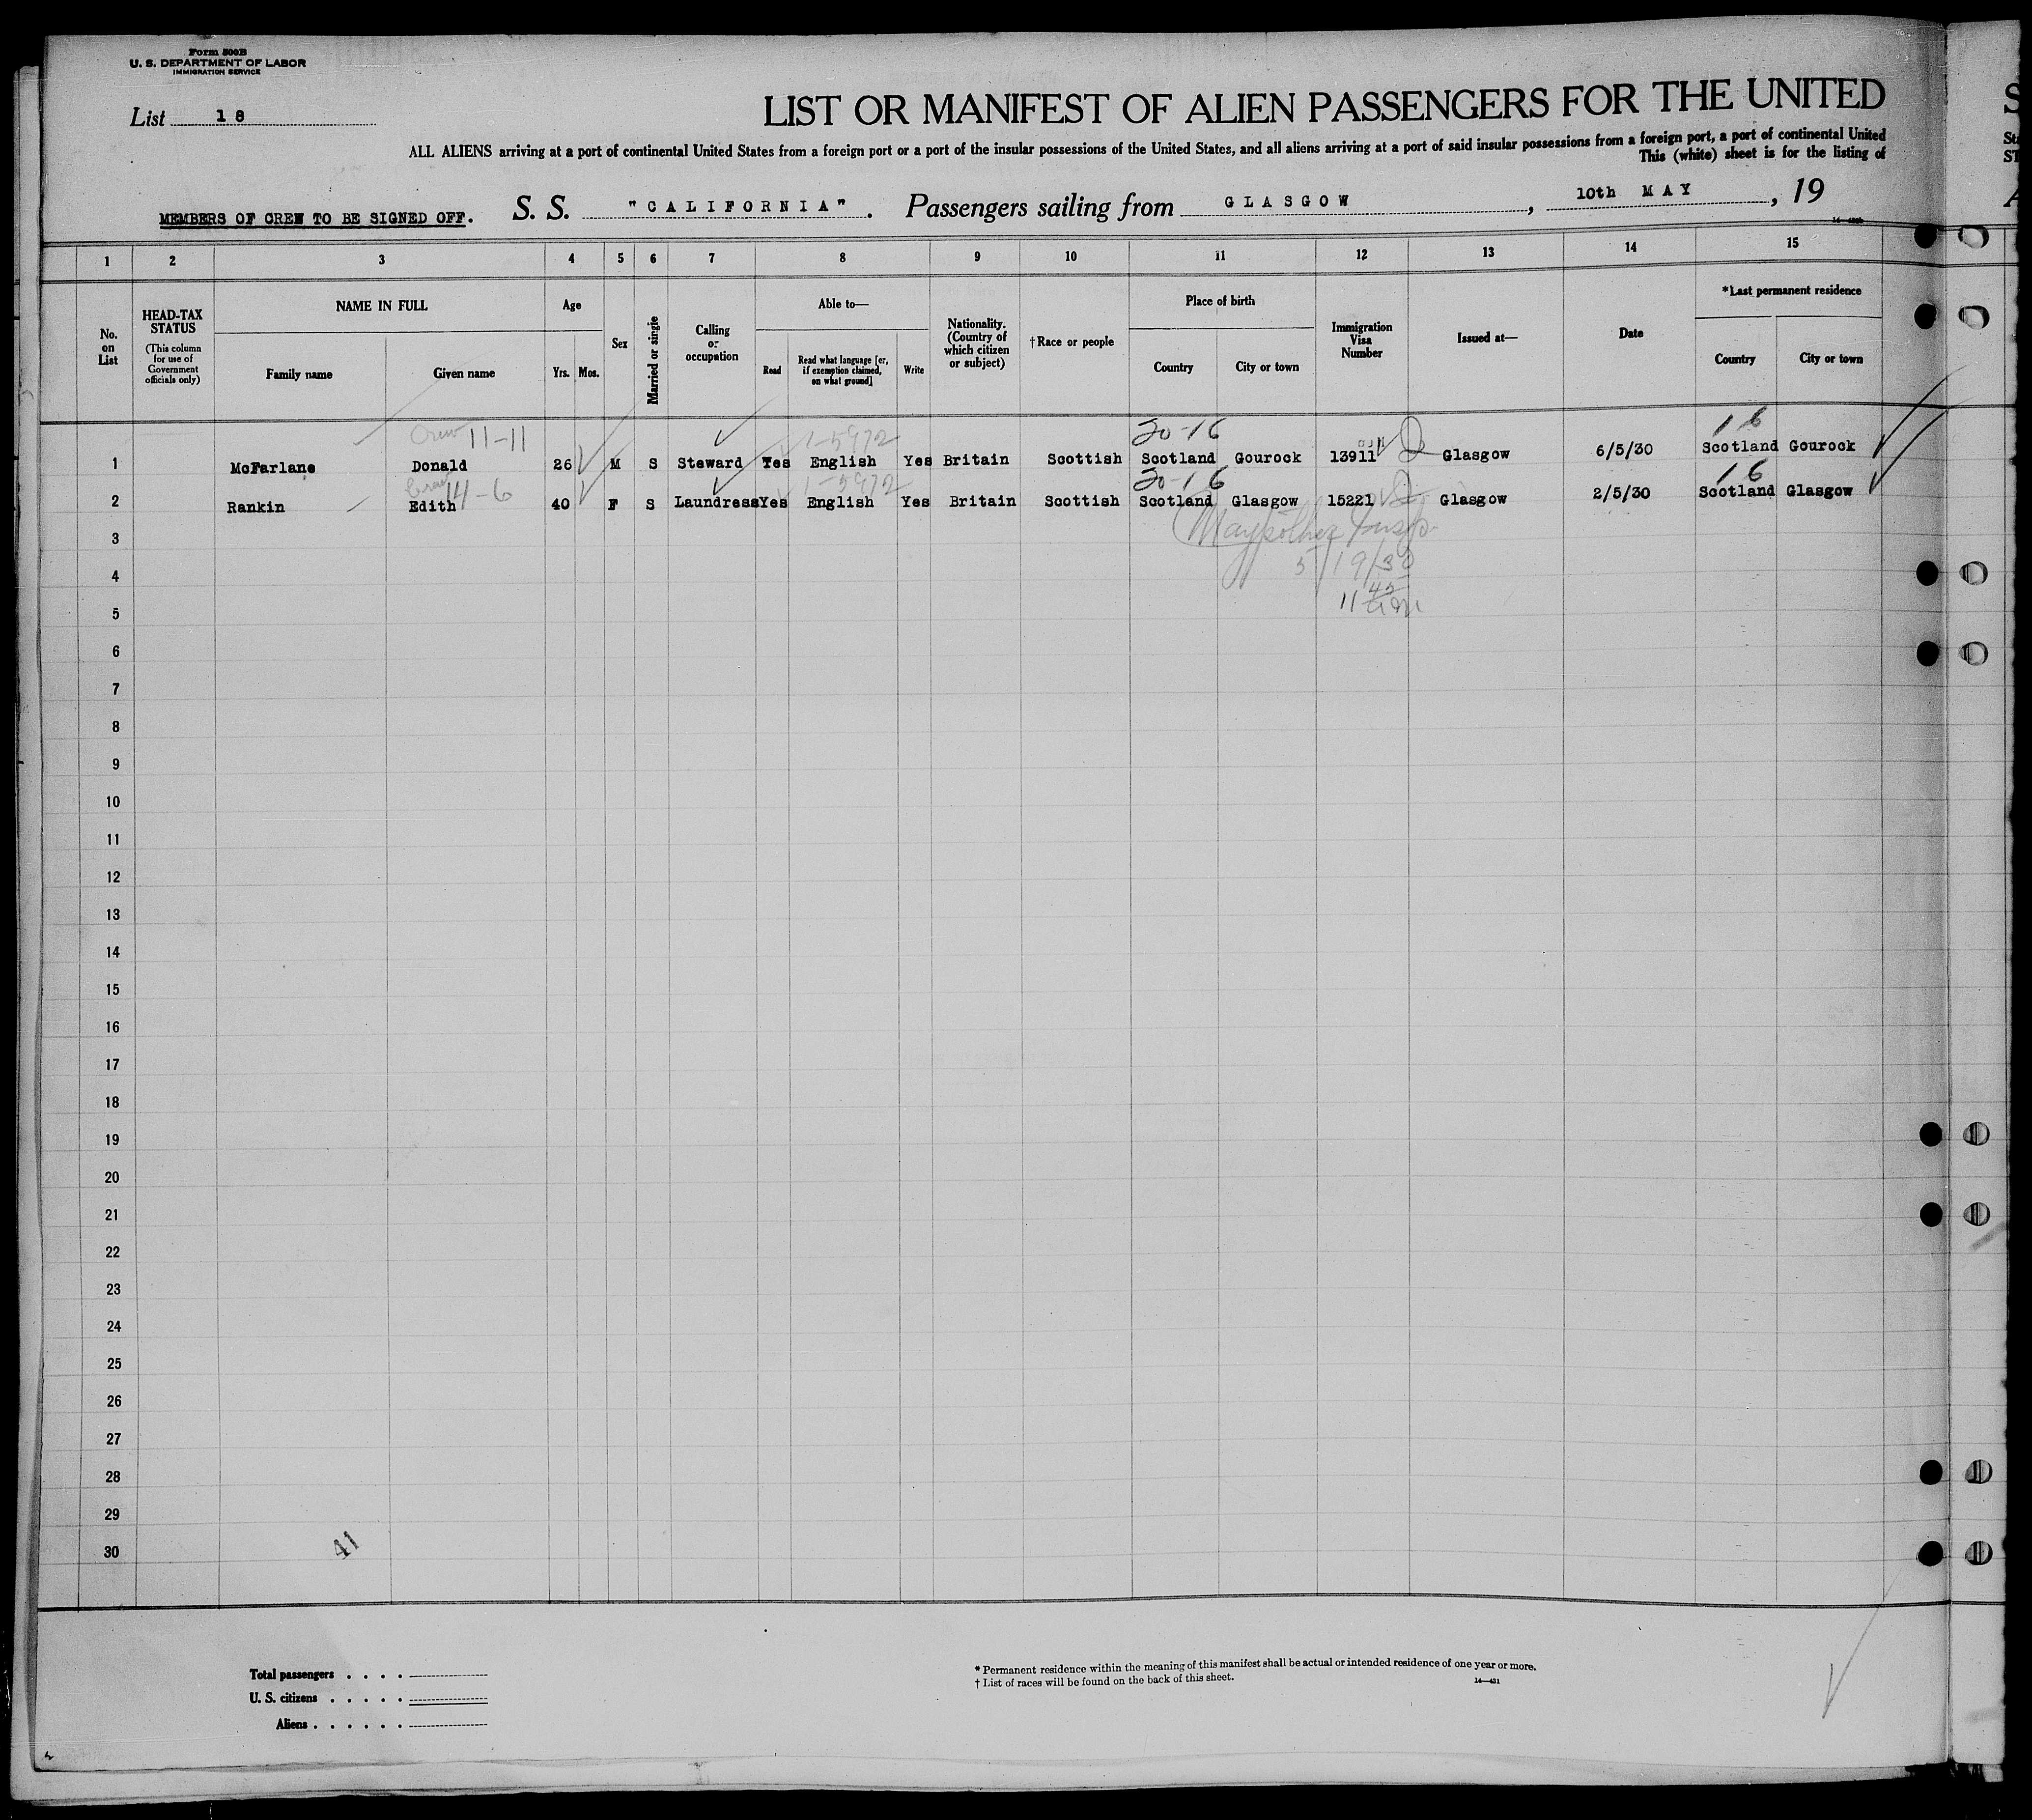 Form 500B
U. S. DEPARTMENT OF LABOR
IMMIGRATION SERVICE
List 18
LIST OR MANIFEST OF ALIEN PASSENGERS FOR THE UNITED
ALL ALIENS arriving at a port of continental United States from a foreign port or a port of the insular possessions of the United States, and all aliens arriving at a port of said insular possessions from a foreign port, a port of continental United
This (white) sheet is for the listing of
MEMBERS OF CREW TO BE SIGNED OFF. S. S. "CALIFORNIA". Passengers sailing from GLASGOW, 10th MAY, 19
1 2 3 4 5 6 7 8 9 10 11 12 13 14 15
No. on List
HEAD-TAX STATUS
(This column for use of Government officials only)
NAME IN FULL
Family name
Given name
Age
Yrs. Mos.
Sex
Married or single
Calling or occupation
Able to—
Read
Read what language [or, if exemption claimed, on what ground]
Write
Nationality. (Country of which citizen or subject)
†Race or people
Place of birth
Country
City or town
Immigration Visa Number
Issued at—
Date
*Last permanent residence
Country
City or town
Crew 11-11 1-5972 20-16 16
1 McFarlane Donald 26 M S Steward Yes English Yes Britain Scottish Scotland Gourock 13911 Glasgow 6/5/30 Scotland Gourock
Crew 14-6 1-5972 20-16 16
2 Rankin Edith 40 F S Laundress Yes English Yes Britain Scottish Scotland Glasgow 15221 Glasgow 2/5/30 Scotland Glasgow
3
5/19/30
4
11 45 am
5
6
7
8
9
10
11
12
13
14
15
16
17
18
19
20
21
22
23
24
25
26
27
28
29
30
41
Total passengers
U. S. citizens
Aliens
* Permanent residence within the meaning of this manifest shall be actual or intended residence of one year or more.
† List of races will be found on the back of this sheet.
14—431